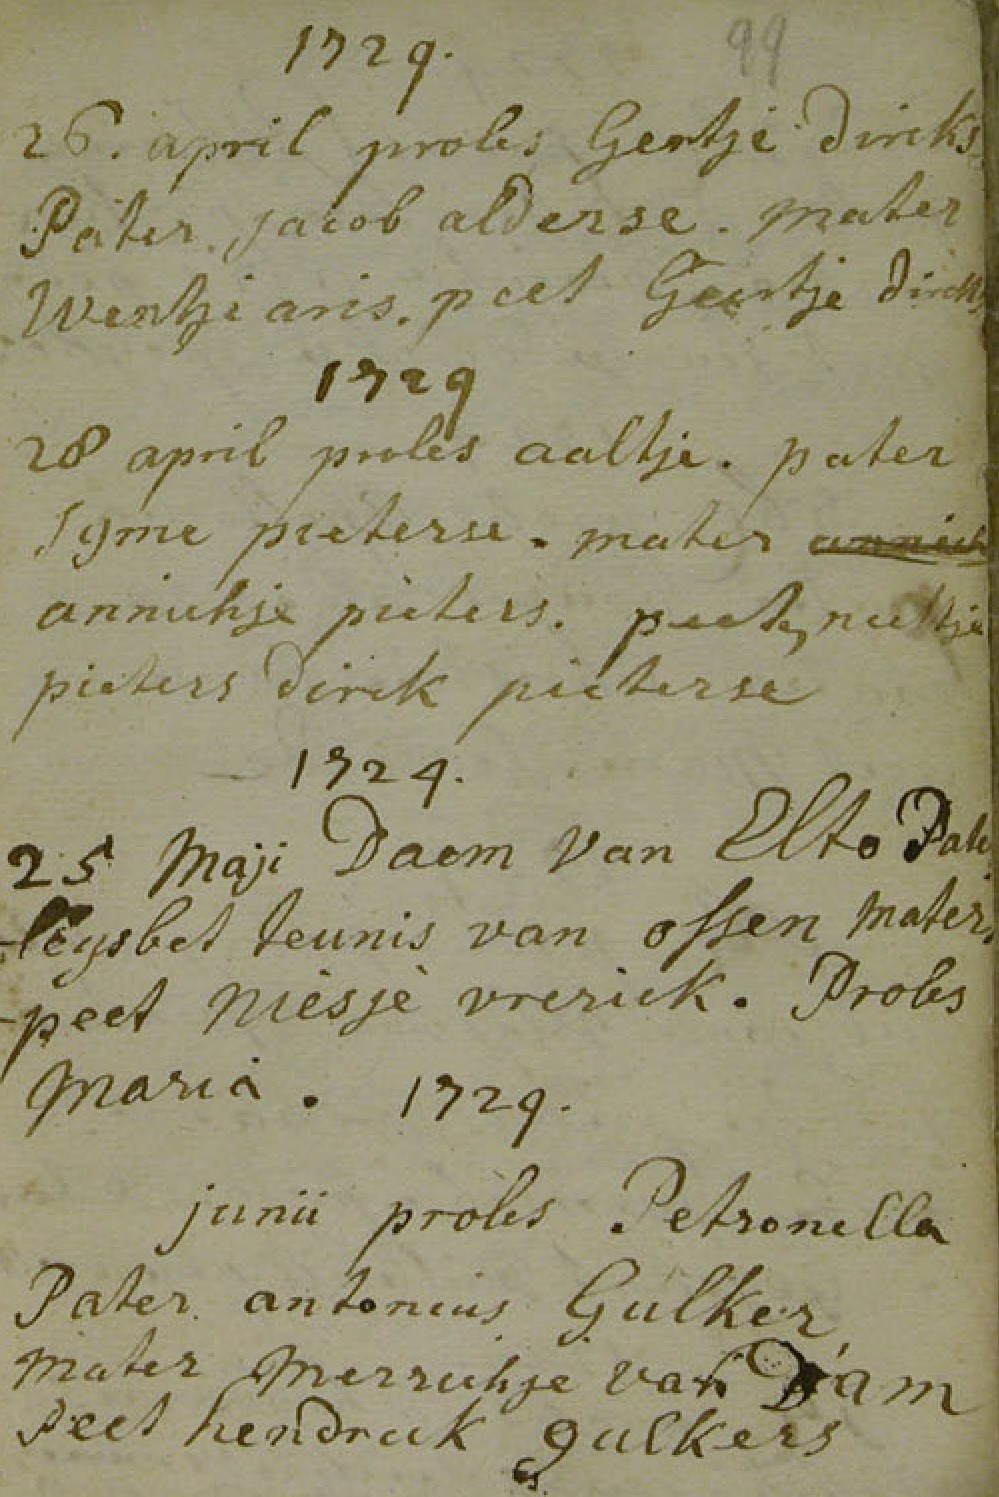 1729. 99
26. april proles Gertje dircks
Pater. jacob alderse. mater
Wentje aris. peet Geertje dircks
1729
28 april proles aaltje. pater
Syme pieterse. mater
annichje pieters. peet, neeltje
pieters dirck pieterse
1729.
25 Maji Daem van Elto Pate
leysbet teunis van ossen mater.
peet Niesje vrerick. Proles
Maria. 1729.
junii proles Petronella
Pater. antonius Gulker
mater Merrichje van Dam
Peet hendrick gulkers